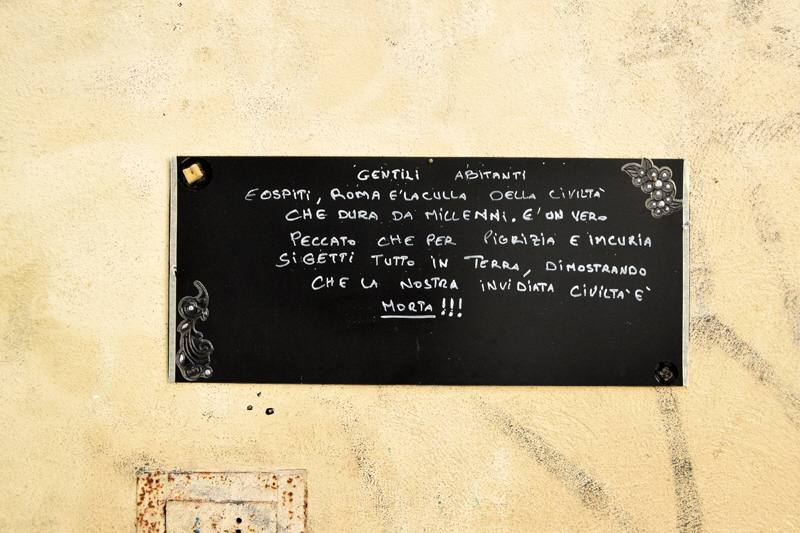 GENTILI ABITANTI
E OSPITI, ROMA E' LA CULLA DELLA CIVILTÀ
CHE DURA DA MILLENNI. E' UN VERO
PECCATO CHE PER PIGRIZIA E IMCURIA
SI GETTI TUTTO IN TERRA, DIMOSTRANDO
CHE LA NOSTRA INVIDIATA CIVILTA' E'
MORTA!!!